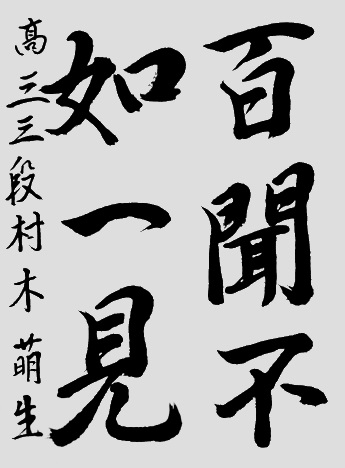 百聞不
如一見
高三三段村木萌生